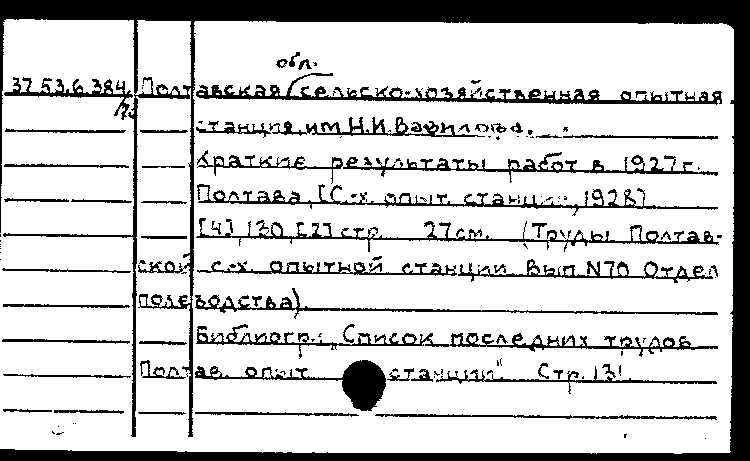 обл.
37 53.6.384 Полтавская сельско-хозяйственная опытная
/70
станция им. Н.И. Вавилова.
Краткие результаты работ в 1927 г.
Полтава, [С.-х. опыт. станция, 1928]
[4], 130, [2] стр. 27 см. (Труды Полтав-
ской с.-х. опытной станции. Вып. N70 Отдел
полеводства).
Библиогр.: „Список последних трудов
Полтав. опыт. станции" Стр. 131.